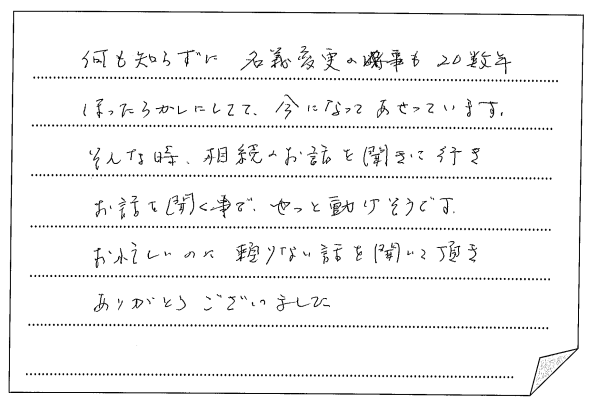 何も知らずに 名義変更の事も 20数年
ほったらかしにしてて、今になってあせっています。
そんな時、相続のお話を聞きに行き
お話を聞く事で、やっと動けそうです。
お忙しいのに 頼りない話を聞いて頂き
ありがとうございました